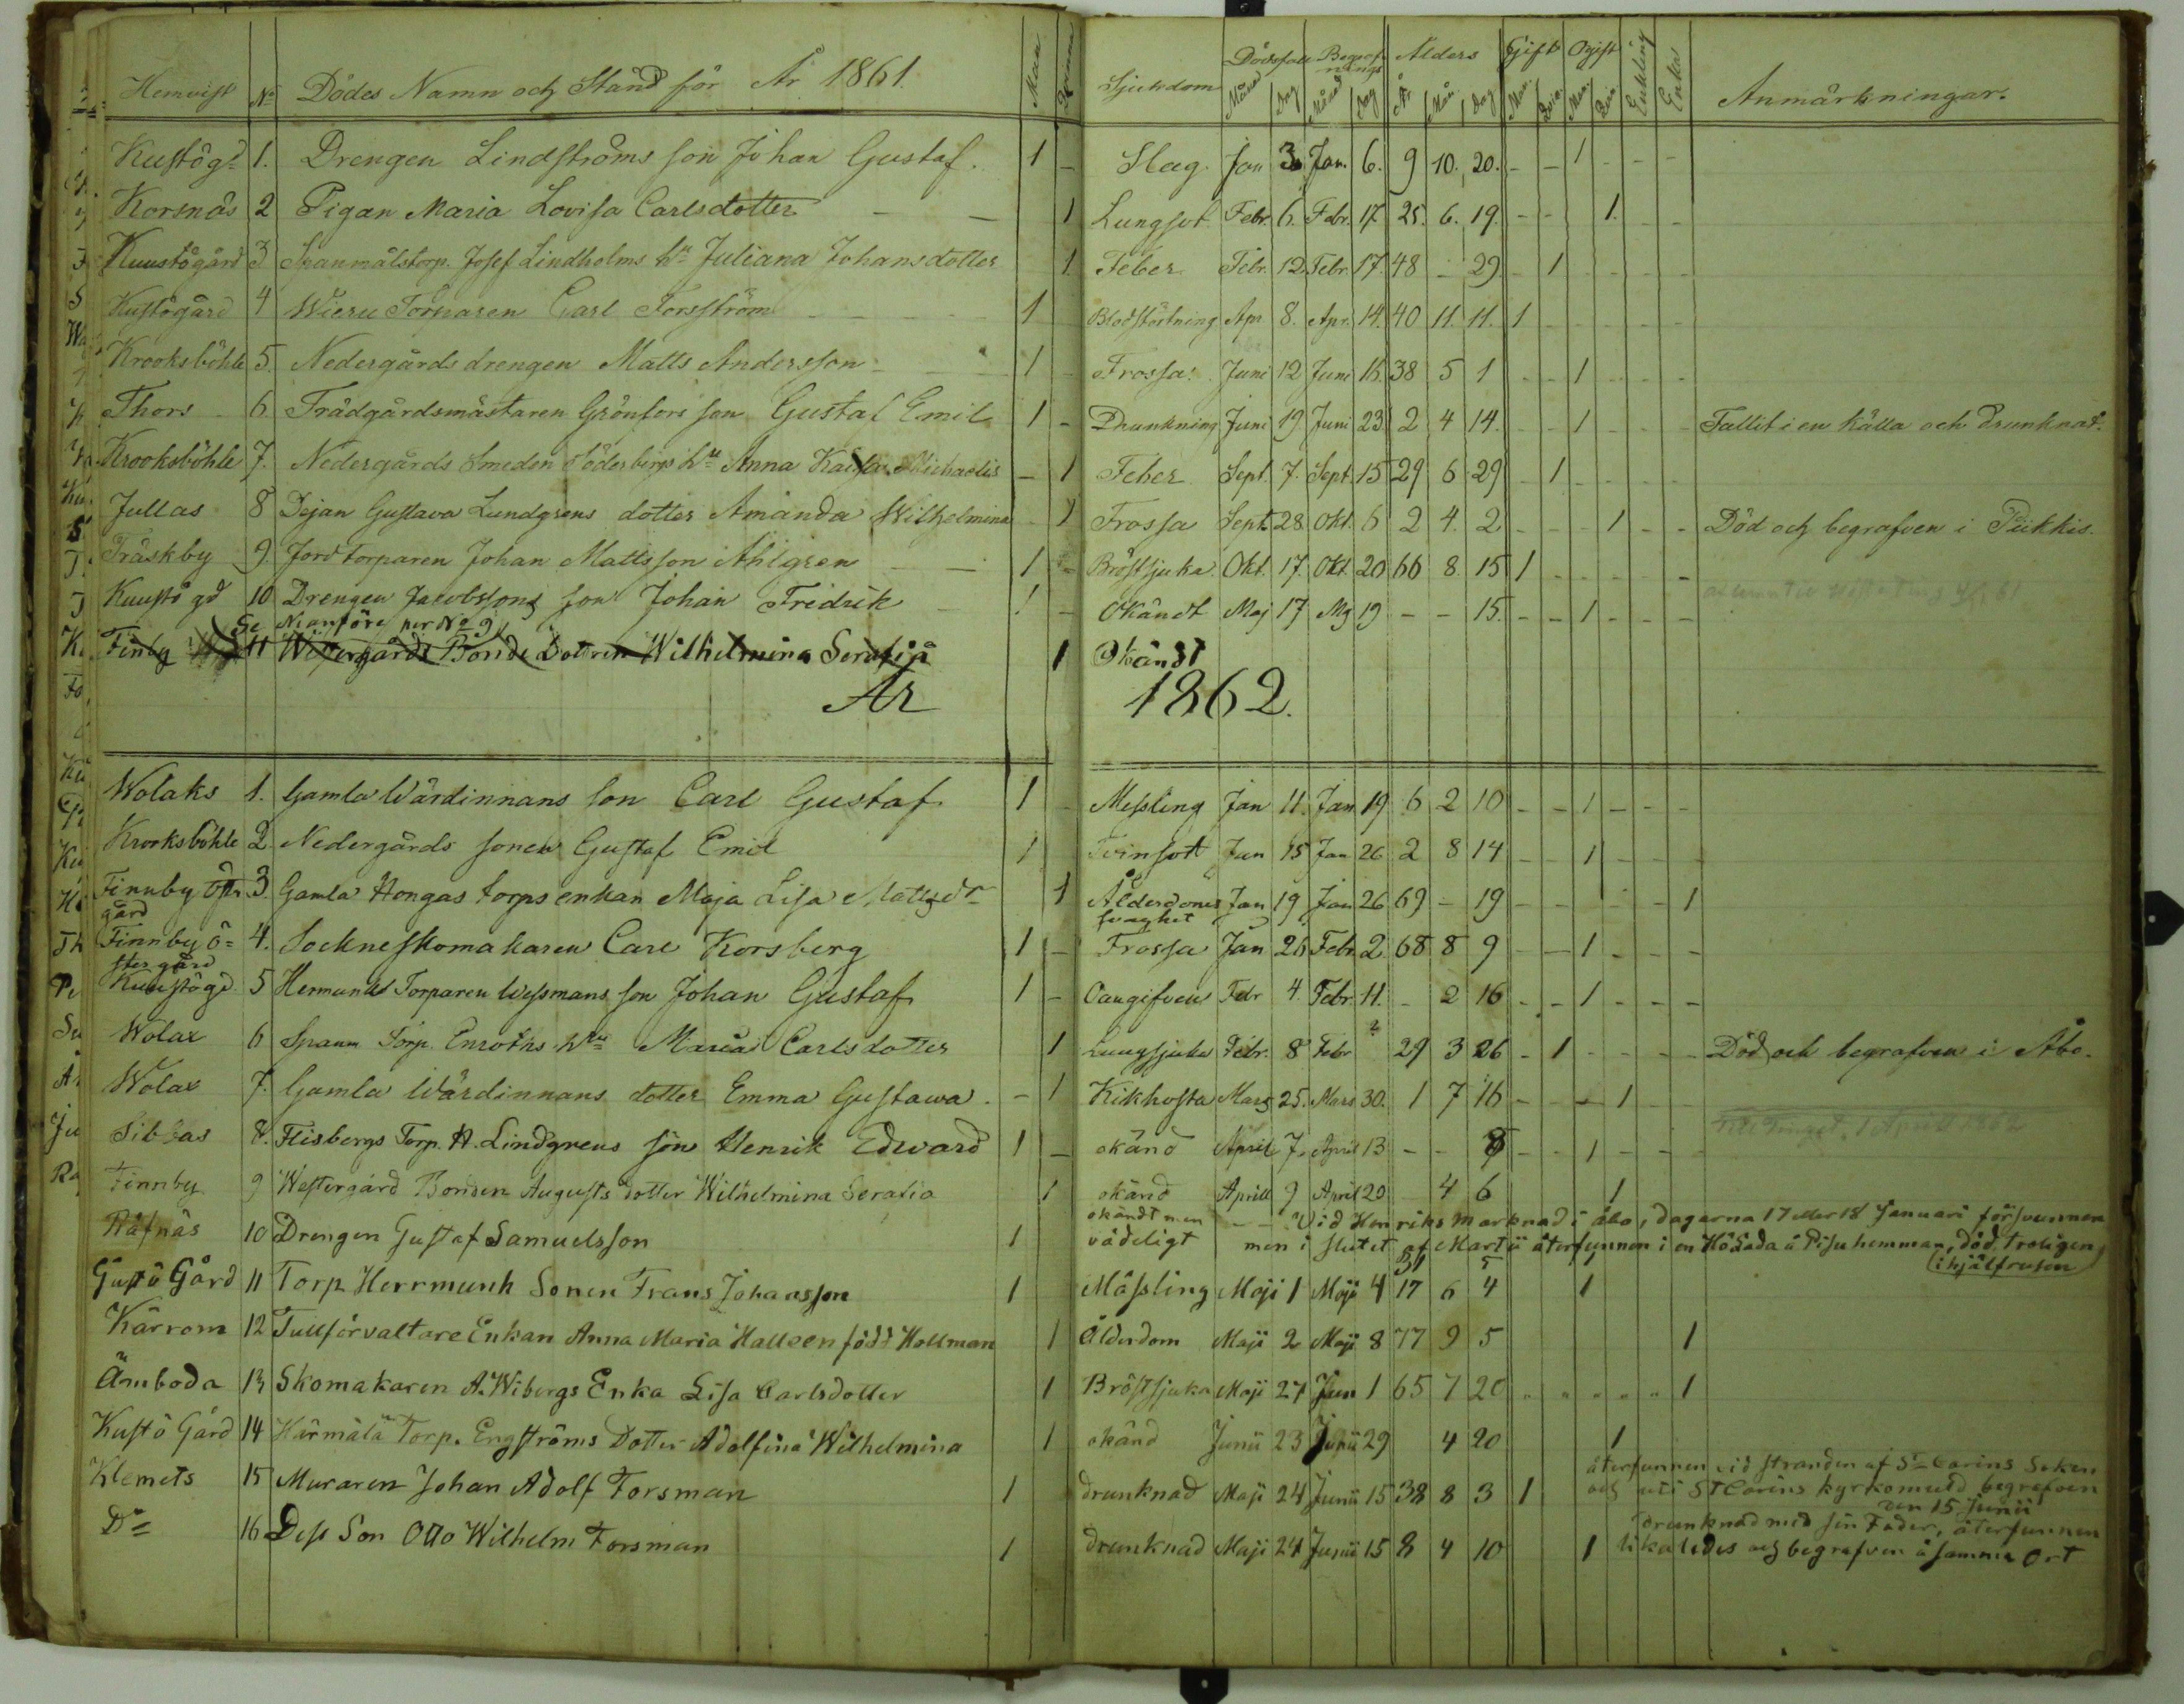 Hemvist No Dödes Namn och Stånd för År 1861. Man Sjukdom Dödsfall Begrafnings Ålders Gift Ogift Enkling Enka Anmärkningar.
Månad Dag Månad Dag År Mån Dag Man Qvin. Man. Qvin
Kustög? 1. Drengen Lindströms son Johan Gustaf. 1 - Slag. Jan 3 Jan. 6. 9 10. 20. - - 1 - - -
Korsnäs 2 Pigan Maria Lovisa Carlsdotter - - 1 Lungsot. Febr. 6. Febr. 17 25. 6. 19. - - 1. - -
Kuustögård 3 Spanmålstorp. Josef Lindholms hu Juliana Johansdotter 1 Feber Febr. 12. Febr. 17. 48 - 29. - 1 - - - -
Kustögård 4 Wieru Torparen Carl Forsström 1 Blodstörtning Apr. 8. Apr. 14. 40 11. 11. 1 - - - - -
Krooksböhle 5. Nedergårds drengen Matts Andersson 1 - Frossa. Juni 12 Juni 16. 38 5 1 - - 1 - - -
Thors 6 Trädgårdsmästaren Grönfors son Gustaf Emil 1 - Drunkning Juni 19 Juni 23 2 4 14. - - 1 - - - Fallit i en källa och drunknat.
Krooksböhle 7. Nedergårds Smeden Söderbergs hu Anna Kaisa Michaelis - 1 Feber Sept. 7. Sept. 15 29 6 29 - 1 - - - -
Jullas 8 Pejan Gustava Lundgrens dotter Amanda Wilhelmina - 1 Frossa Sept. 28 Okt. 6 2 4. 2 - - - 1 - - Död och begrafven i Piikkis.
Träskby 9. Jordtorparen Johan Mattsson Ahlgren 1 - Bröstsjuka. Okt. 17. Okt. 20 66 8. 15 1 - - - - -
Kuustö gd 10 Drengen Jacobssons son Johan Fridrik 1 - Okändt Maj 17 Mj 19 - - 15. - - 1 - - -
Se Nianföre per No 9
Finby 11 Westergårds Bonde Dotren Wilhelmina Serafia 1 Okändt
År 1862.
Wolaks 1. Gamla Wärdinnans son Carl Gustaf 1 - Messling Jan 11. Jan 19 6 2 10 - - 1 - - -
Krooksböhle 2 Nedergårds sonen Gustaf Emil 1 Tvinsott Jan 15 Jan 26 2 8 14 - - 1 - - -
Finnby Östr 3. Gamla Hongas torps enkan Maja Lisa Mattsdr 1 Ålderdoms Jan 19 Jan 26 69 - 19 - - - - - 1
gård svaghet
Finnby ö= 4. Sockneskomakaren Carl Korsberg 1 - Frossa Jan 26 Febr. 2 68 8 9 - - 1 - - -
stergård
Kuustögd 5 Hermunks Torparen Wessmans son Johan Gustaf 1 - Oangifven Febr 4. Febr. 11. - 2 16 - - 1 - - -
Wolax 6 Spanm Torp. Enroths hu Maria Carlsdotter 1 Lungsjuka Febr. 8 Febr ? 29 3 26 - 1 - - - - Död och begrafven i Åbo.
Wolax 7. Gamla Wärdinnans dotter Emma Gustawa. - 1 Kikhosta Mars 25. Mars 30. 1 7 16 - - - 1 - -
Sibbas 8. Flisbergs Torp. A. Lindgrens son Henrik Edward 1 - okänd April 7. April 13 - - 8 - - 1 - - -
Finnby 9 Westergård Bonden Augusts dotter Wilhelmina Serafia 1 okänd Aprill 9 April 20 - 4 6 1
Räfnäs 10 Drengen Gustaf Samuelsson 1 okändt men - - Vid Henriks marknad i åbo, dagarna 17 eller 18 Januari försvunnen
vådeligt men i slutet af Martii återfunnen i en Hölada å Pisu hemman, död, troligen
ihjälfrusen
Gustö Gård 11 Torp Herrmunk Sonen Frans Johansson 1 Mässling Maji 1 Maji 4 17 6 4 1
Kärrom 12 Tullförvaltare Enkan Anna Maria Halleen född Hollman 1 Ålderdom Maji 2 Maji 8 77 9 5 1
Ämboda 13 Skomakaren A. Wibergs Enka Lisa Carlsdotter 1 Bröstsjuka Maji 27 Jun 1 65 7 20 " " " " " 1
Kustö Gård 14 Härmälä Torp. Engströms Dotter Adolfina Wilhelmina 1 okänd Junii 23 Junii 29 4 20 1
Klemets 15 Muraren Johan Adolf Forsman 1 drunknad Maji 24 Junii 15 38 8 3 1 återfunnen vid stranden af St Carins Soken
och uti St Carins kyrkomuld begrafven
den 15 Junii
Do 16 Dess Son Otto Wilhelm Forsman 1 drunknad Maji 24 Junii 15 8 4 10 1 drunknad med sin Fader, återfunnen
likaledes och begrafven å samma Ort